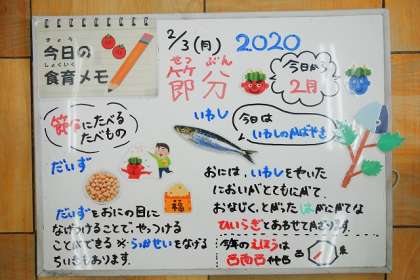 きょう
今日の
しょくいく
食育メモ
2/3(月) 2020
せつ ぶん
節 分
今日から
2月
節分にたべる
たべもの
いわし
今日は
いわしのかばやき
だいず
福
だいずをおにの目に
なげつけることで、やっつける
ことができる ※らっかせいをなげる
ちいきもあります。
おには、いわしをやいた
においがとてもにがて。
おなじく、とがった はがにがてな
ひいらぎとあわせてかざります。
今年のえほうは
西南西